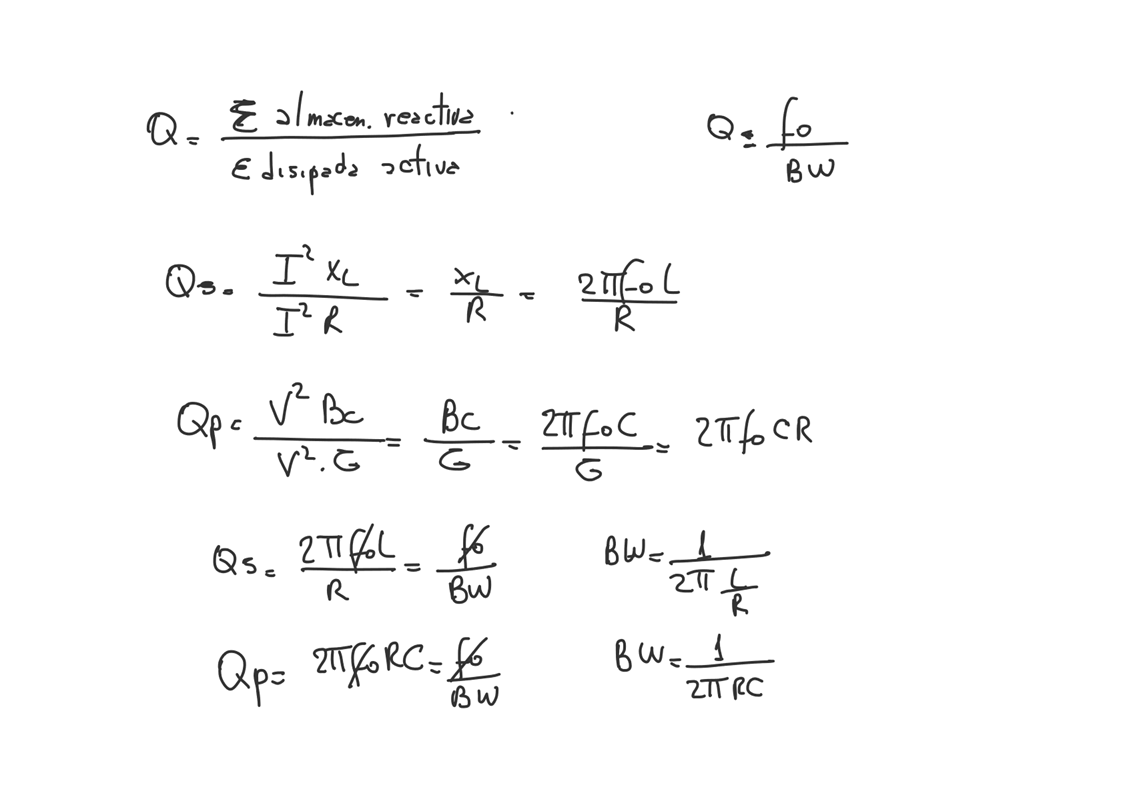 Q = Σ almacen. reactiva / Ɛ disipada activa    Q = fo / BW
Qs = I² XL / I² R = XL / R = 2πfoL / R
Qp = V² Bc / V². G = BC / G = 2πfoC / G = 2πfoCR
Qs = 2πfoL / R = fo / BW    BW = 1 / 2π L/R
Qp = 2πfoRC = fo / BW    BW = 1 / 2πRC